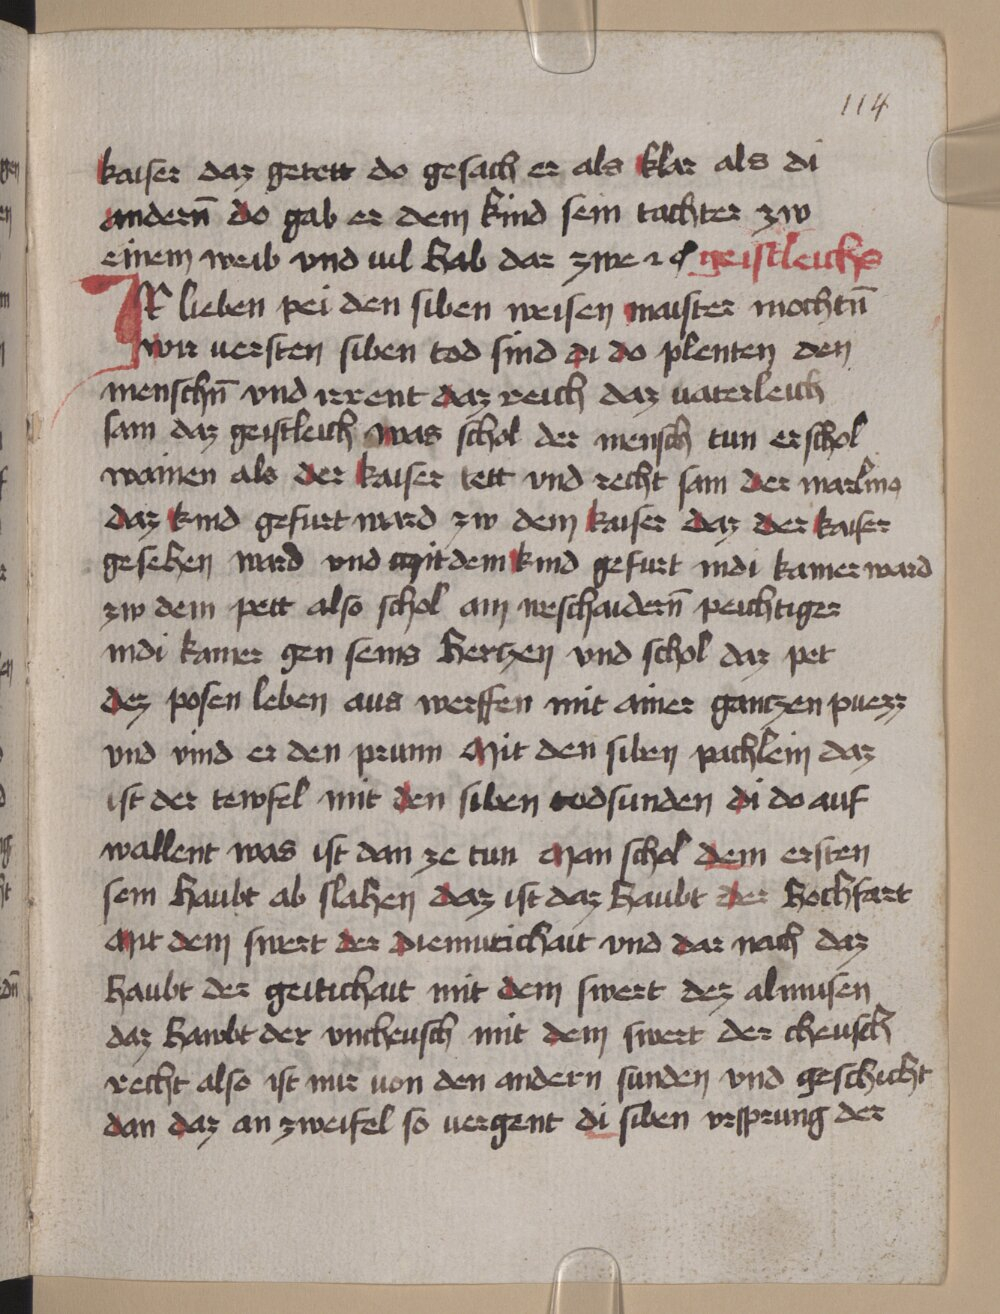 114
kaiser daz getett do gesach er als klar als di
andern̄ do gab er dem kind sein tachter zw
einem weib vnd uil hab dar zwe ꝛc geistleichs
IR lieben pei den siben weisen maister mochtn̄
wir uersten siben tod sind di do plenten den
menschn̄ vnd irrent daz reich daz uaterleich
sam daz geistleich was schol der mensch tun er schol
wainen als der kaiser tett vnd recht sam der
daz kind gefurt ward zw dem kaiser daz der kaiser
gesehen ward vnd mit dem kind gefurt indi kamer ward
zw dem pett also schol ain weschaidern̄ peichtiger
indi kamer gen seins hertzen vnd schol daz pet
dez posen leben aus werffen mit ainer gantzen puezz
vnd vind er den prunn Mit den siben pachlein daz
ist der tewfel mit den siben todsunden di do auf
wallent was ist dan ze tun Man schol dem ersten
sein haubt ab slahen daz ist daz haubt der hochfart
Mit dem swert der diemutichait vnd dar nach daz
haubt der geitichait mit dem swert dez almusen
daz hawbt der vncheusch mit dem swert der cheusch
recht also ist mir von den andern sunden vnd geschicht
dan daz an zweifel so uergent di siben vrsprung der